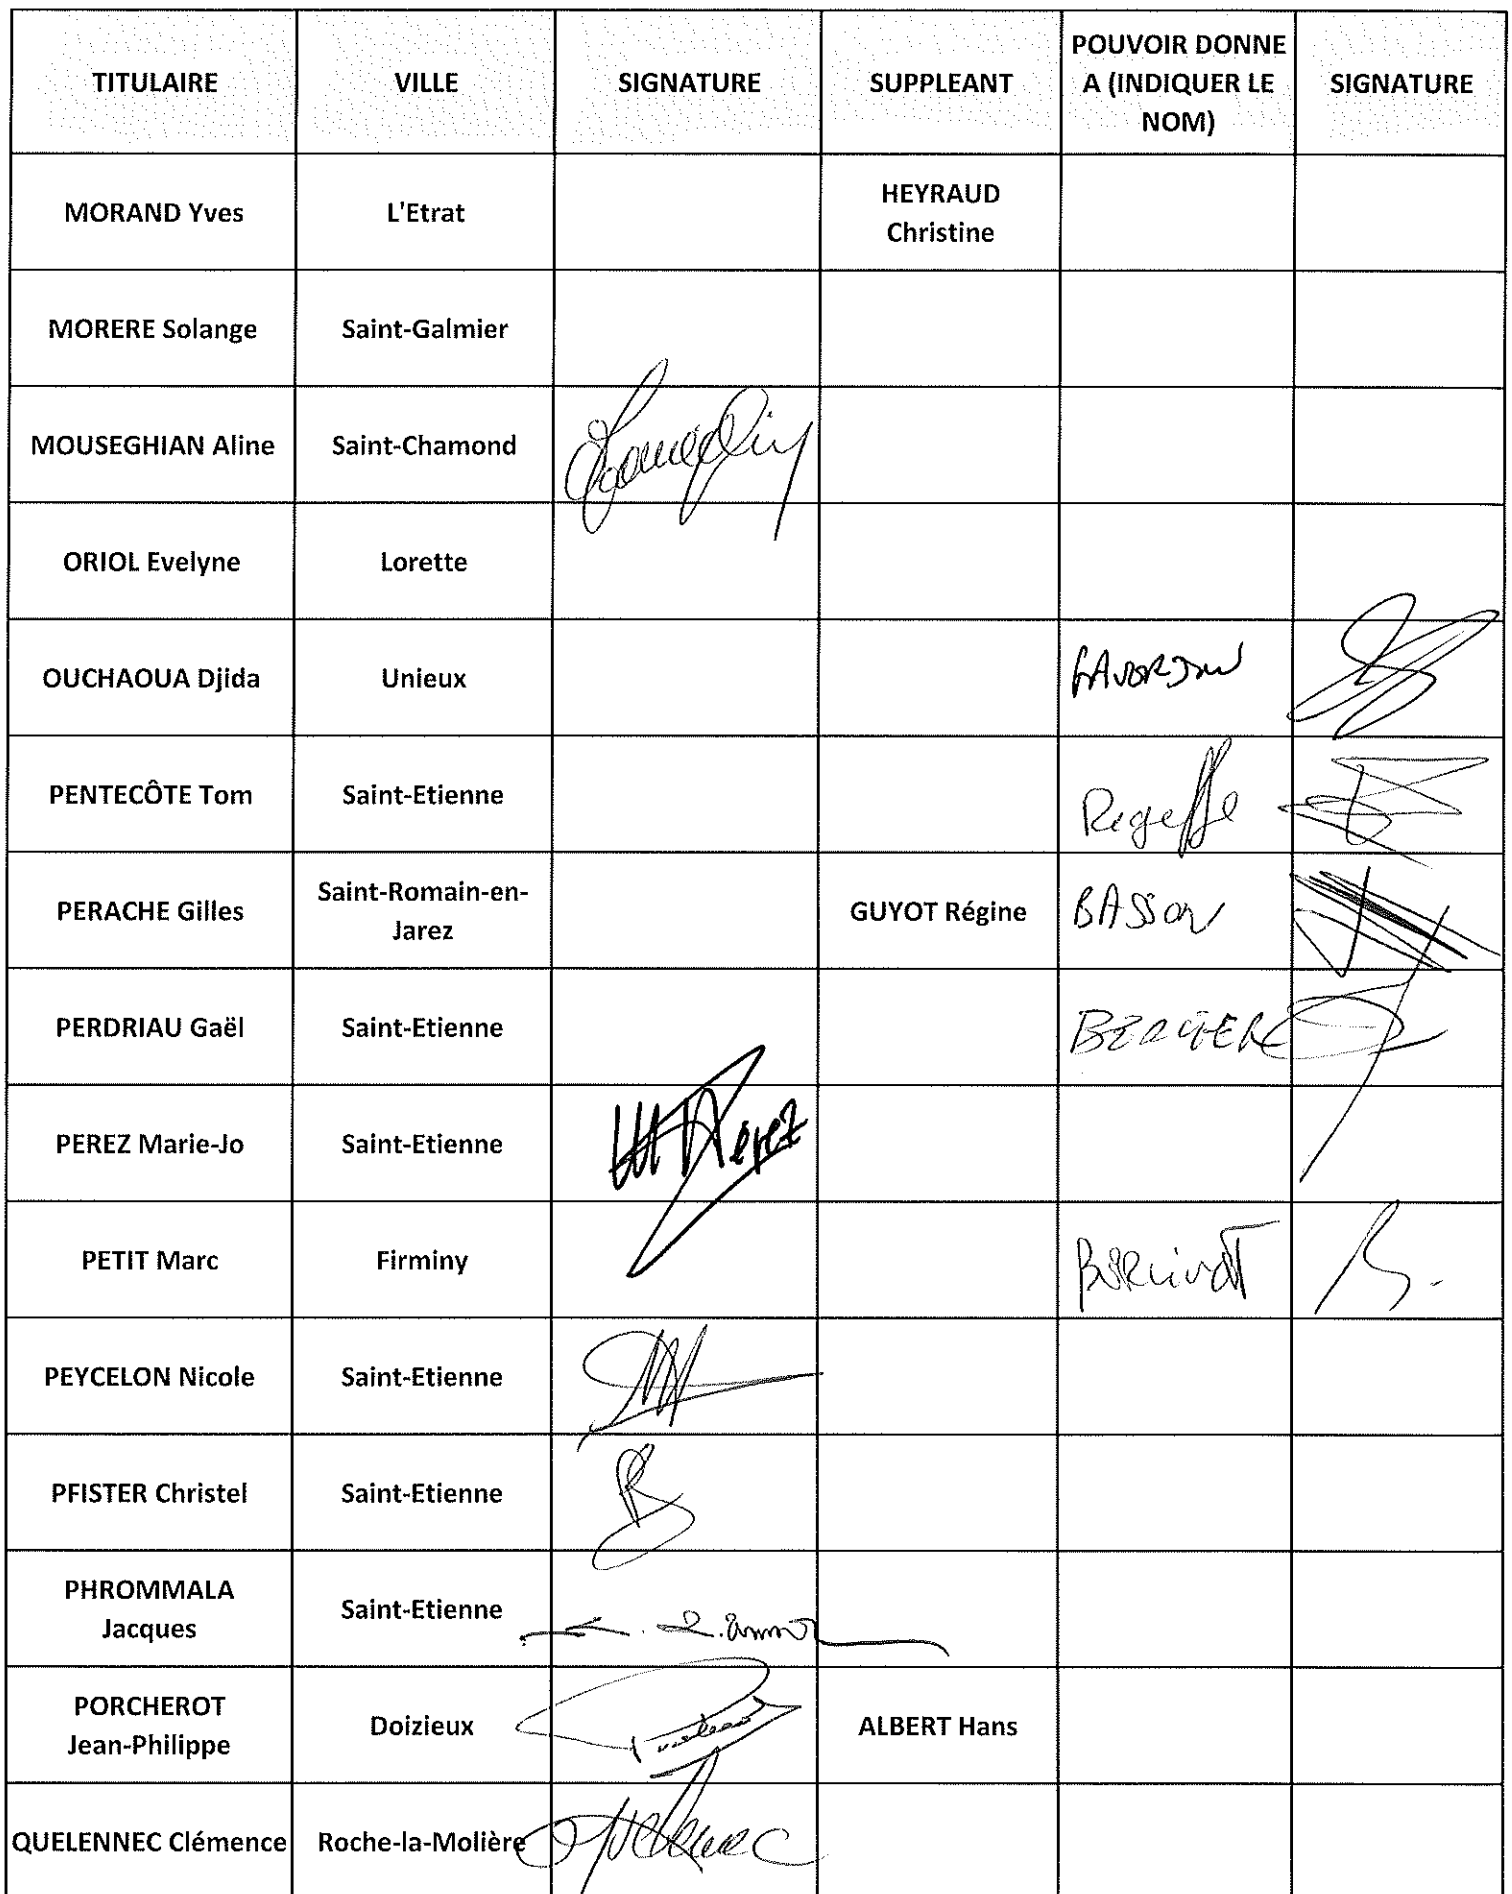 TITULAIRE VILLE SIGNATURE SUPPLEANT POUVOIR DONNE A (INDIQUER LE NOM) SIGNATURE
MORAND Yves L'Etrat HEYRAUD Christine
MORERE Solange Saint-Galmier
MOUSEGHIAN Aline Saint-Chamond
ORIOL Evelyne Lorette
OUCHAOUA Djida Unieux
PENTECÔTE Tom Saint-Etienne
PERACHE Gilles Saint-Romain-en-Jarez GUYOT Régine BASSON
PERDRIAU Gaël Saint-Etienne BERGER
PEREZ Marie-Jo Saint-Etienne Perez
PETIT Marc Firminy
PEYCELON Nicole Saint-Etienne
PFISTER Christel Saint-Etienne
PHROMMALA Jacques Saint-Etienne
PORCHEROT Jean-Philippe Doizieux ALBERT Hans
QUELENNEC Clémence Roche-la-Molière